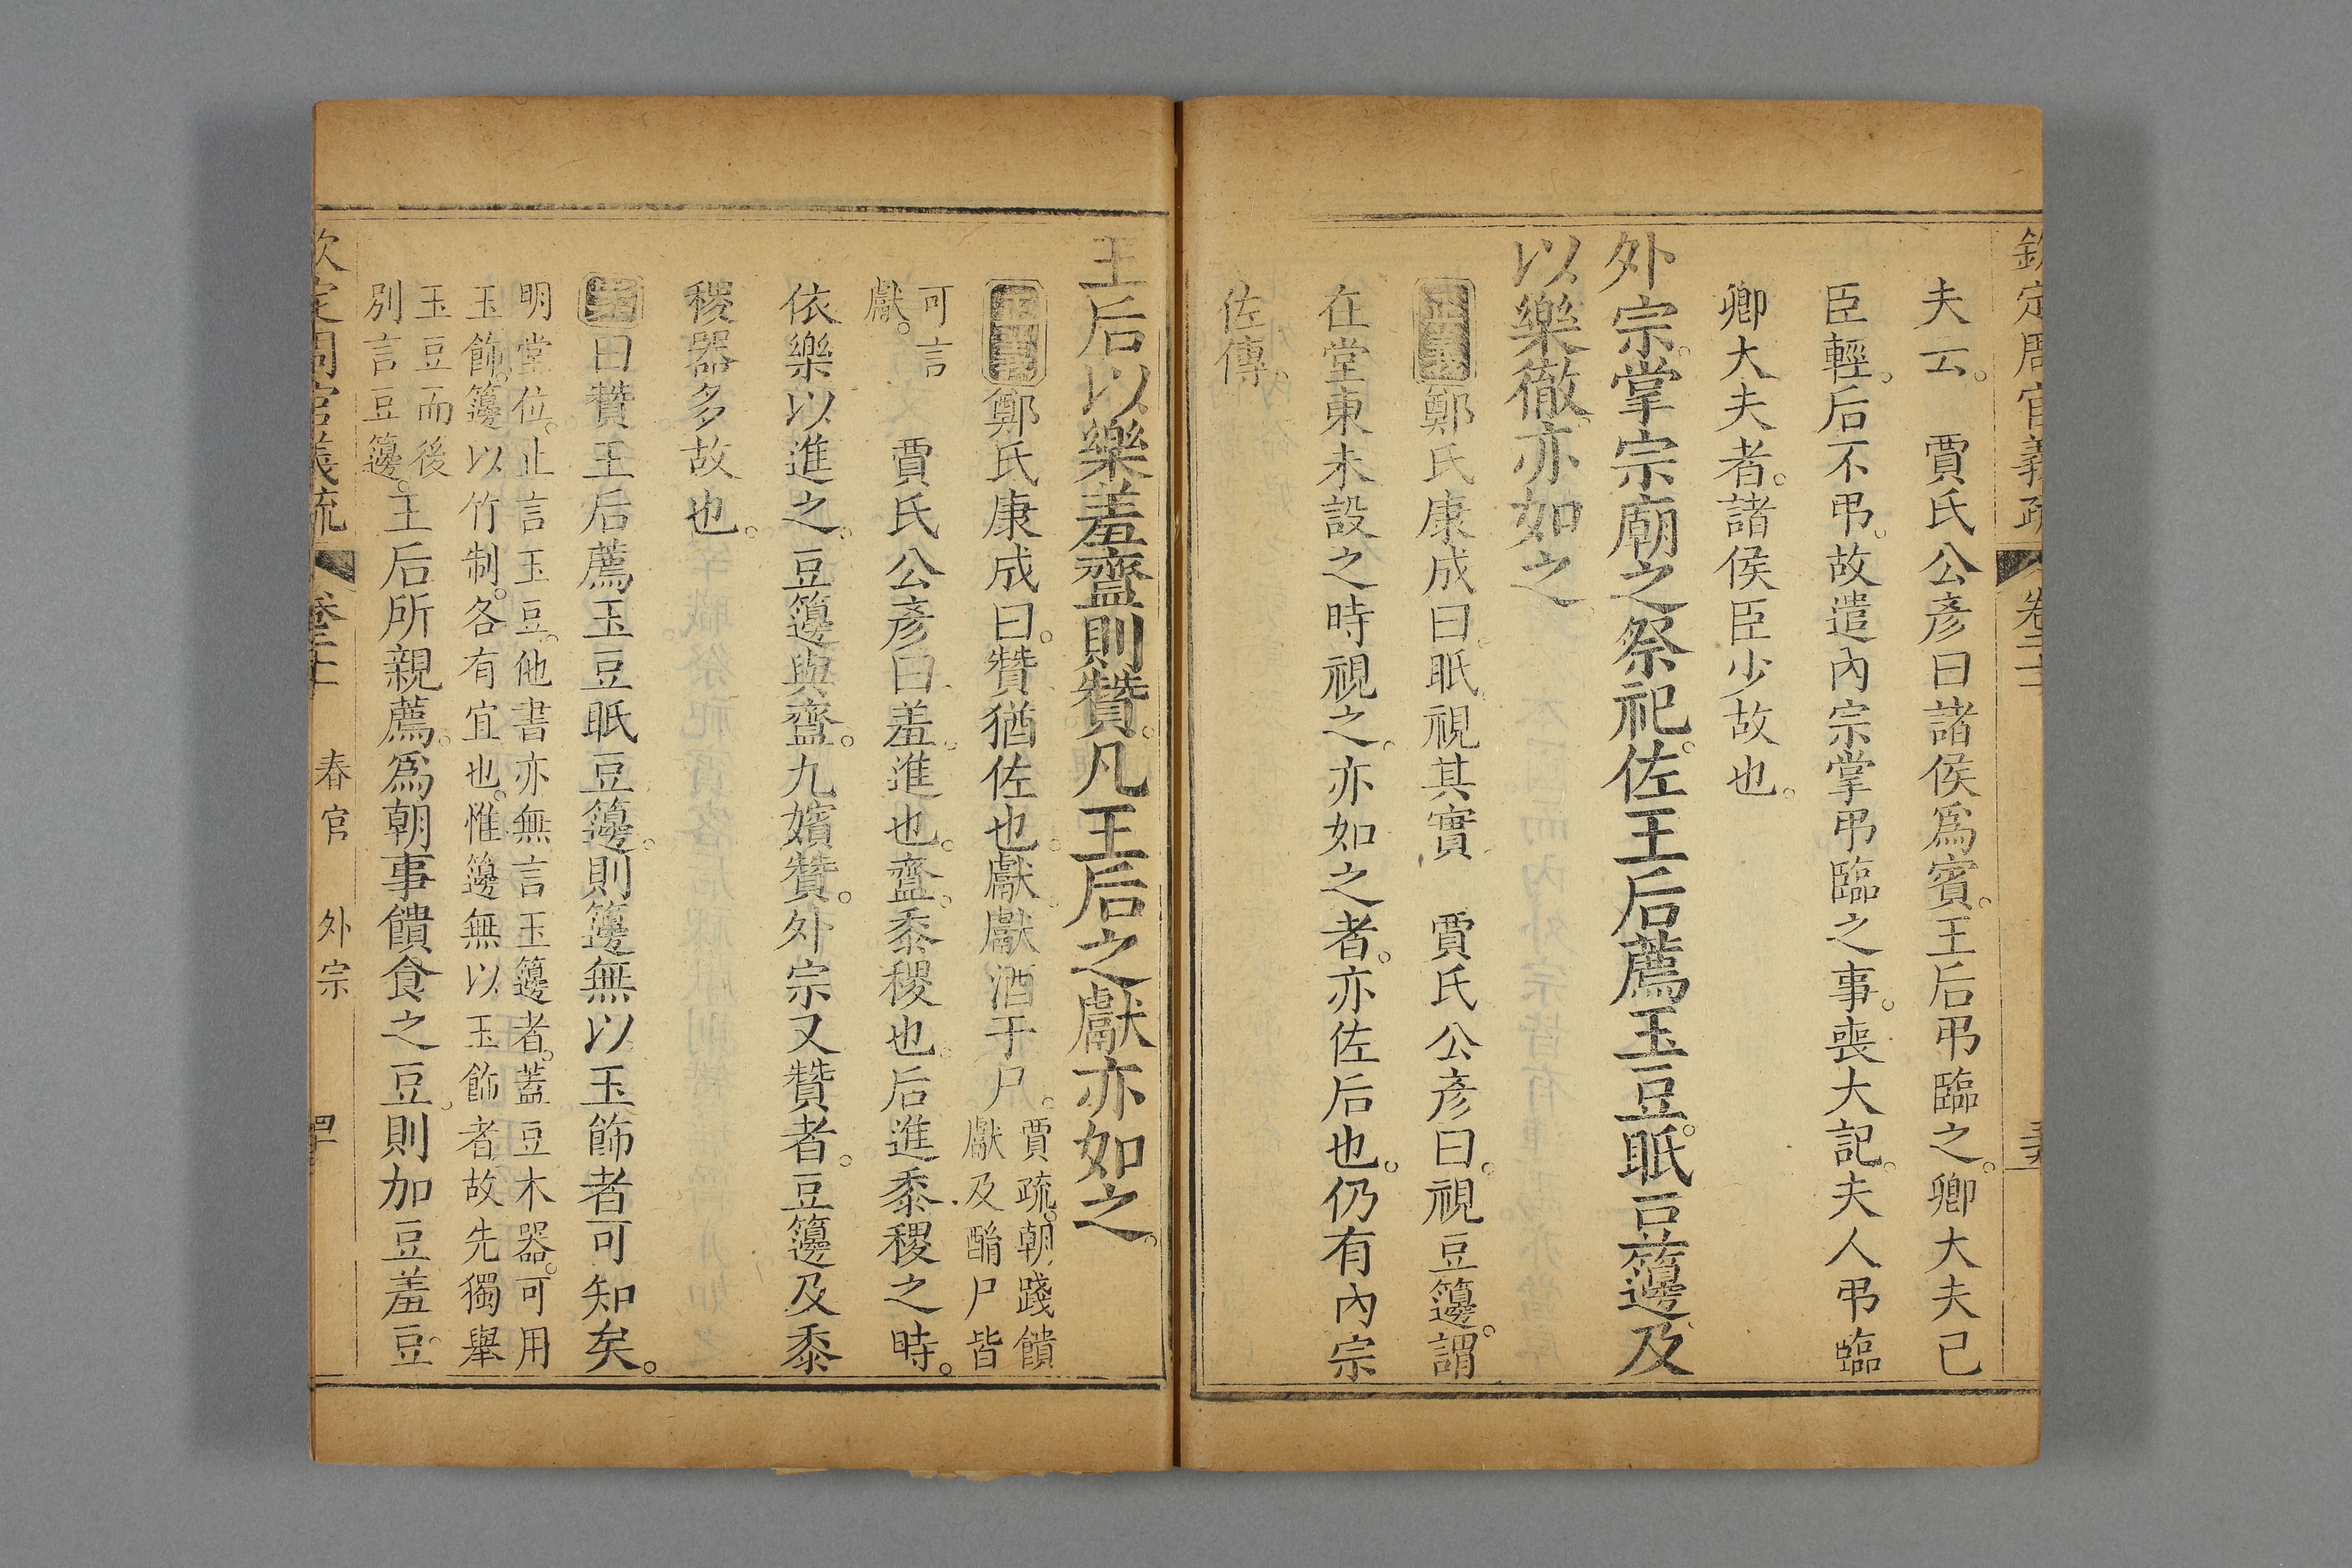 欽定周官義疏 卷二十
夫云。 賈氏公彥曰諸侯爲賓。王后弔臨之。卿大夫已
臣輕。后不弔。故遣內宗掌弔臨之事。喪大記。夫人弔臨
卿大夫者。諸侯臣少故也。
外宗。掌宗廟之祭祀。佐王后薦玉豆。眡豆籩。及
以樂徹。亦如之。
正義鄭氏康成曰。眡視其實 賈氏公彥曰。視豆籩。謂
在堂東未設之時視之。亦如之者。亦佐后也。仍有內宗
佐傳。
王后以樂羞齍則贊。凡王后之獻亦如之。
正義鄭氏康成曰。贊猶佐也。獻獻酒于尸。賈疏。朝踐饋獻及酳尸皆
可言獻。 賈氏公彥曰羞。進也。齍。黍稷也。后進黍稷之時。
依樂以進之。豆籩與齍。九嬪贊。外宗又贊者。豆籩及黍
稷器多故也。
曰贊王后薦玉豆眡豆籩。則籩無以玉飾者可知矣。
明堂位。止言玉豆。他書亦無言玉籩者。蓋豆木器。可用
玉飾。籩以竹制。各有宜也。惟籩無以玉飾者故先獨舉
玉豆而後別言豆籩。王后所親薦。爲朝事饋食之豆。則加豆羞豆。
欽定周官義疏 卷二十 春官 外宗